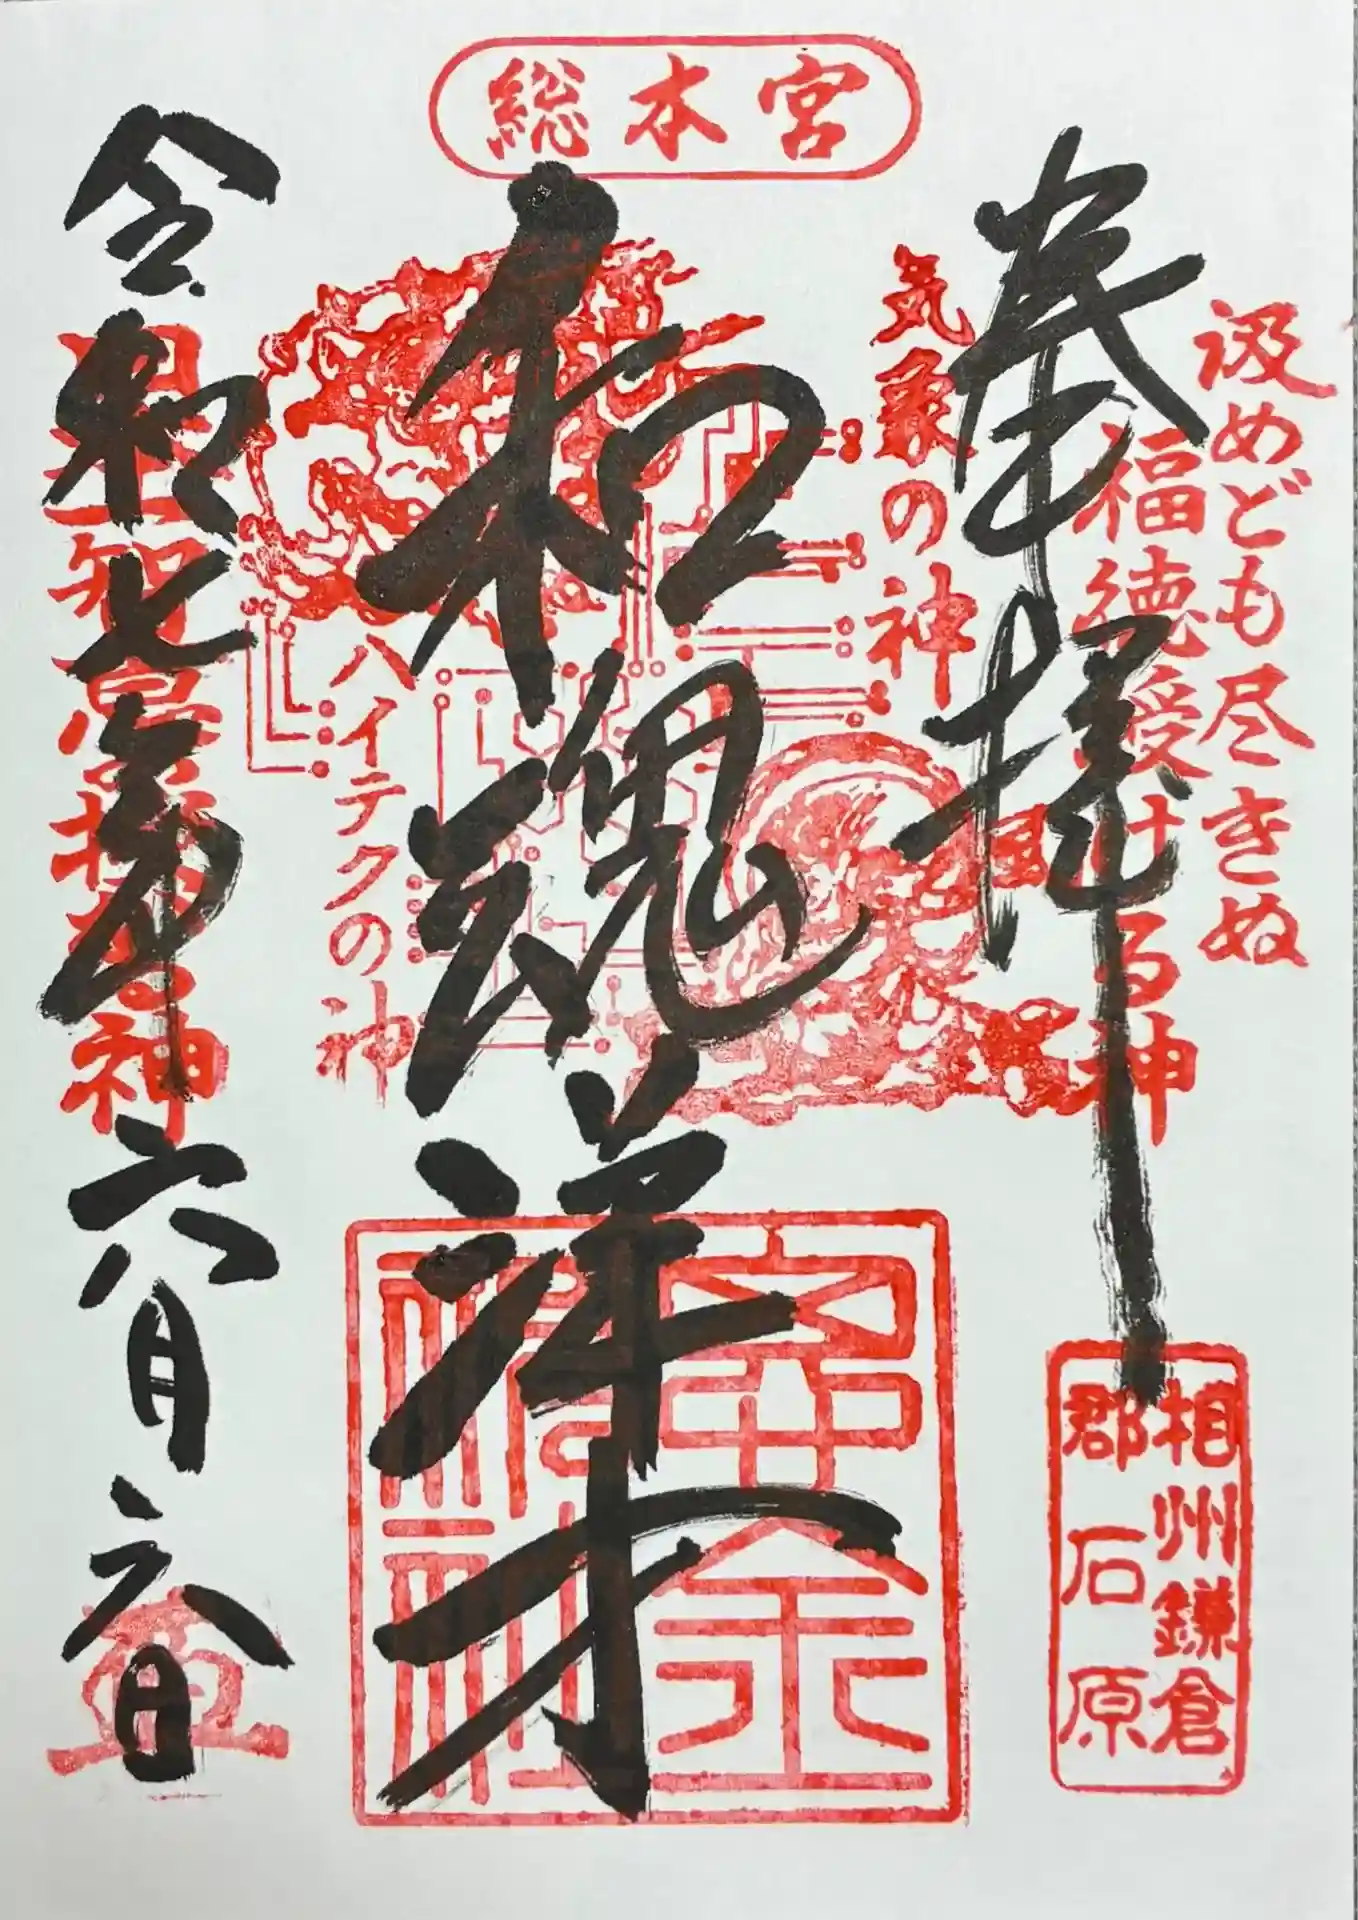 総本宮
奉拝
汲めども尽きぬ
福徳授ける神
相州鎌倉
郡石原
気象の神
和魂洋才
ハイテクの神
令和七年六月六日